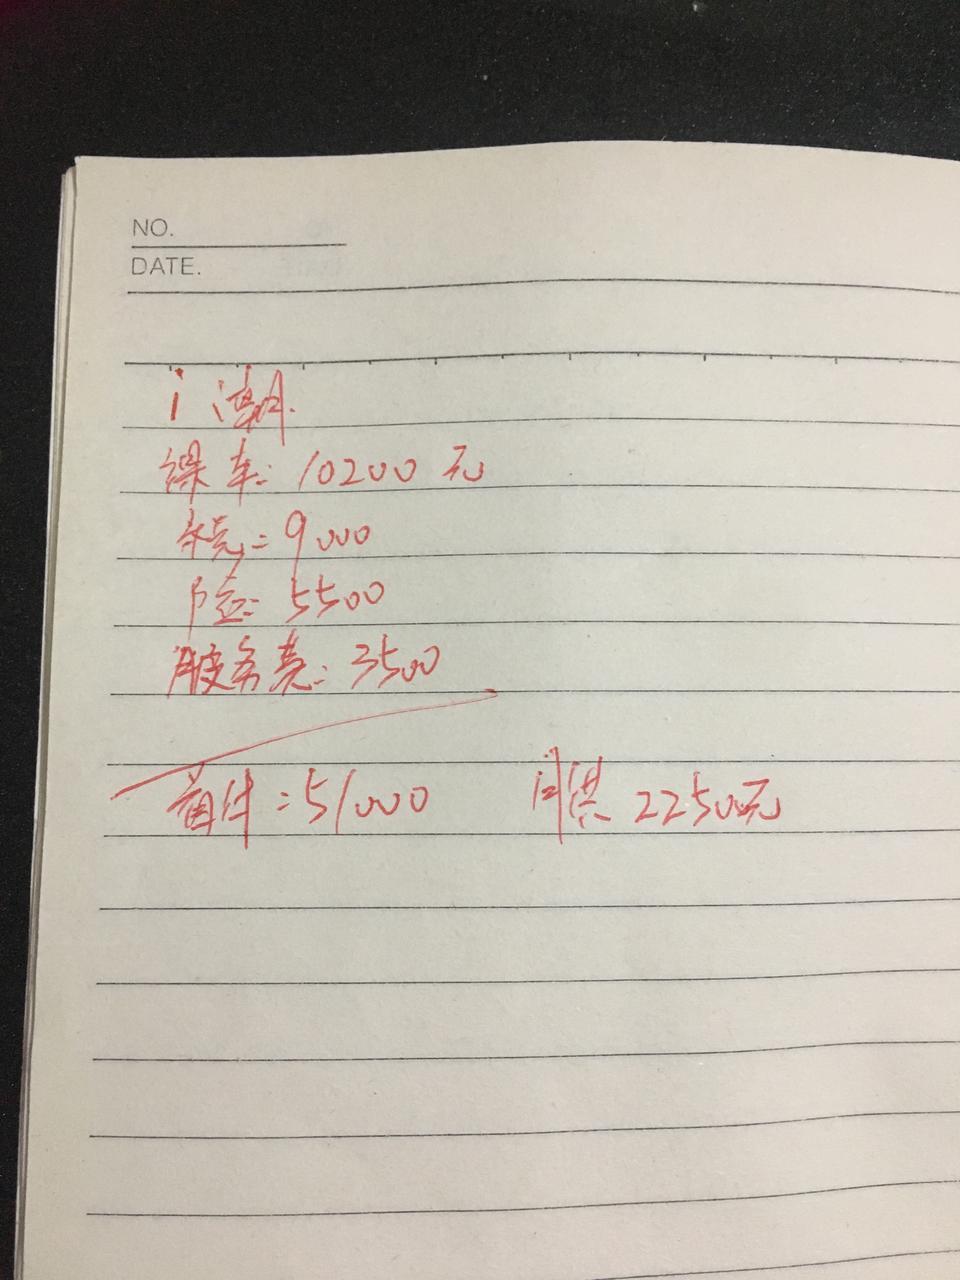 NO.
DATE.
i 潮
裸车: 10200 元
车税: 9000
险: 5500
服务费: 3500
首付: 51000 月供 2250元